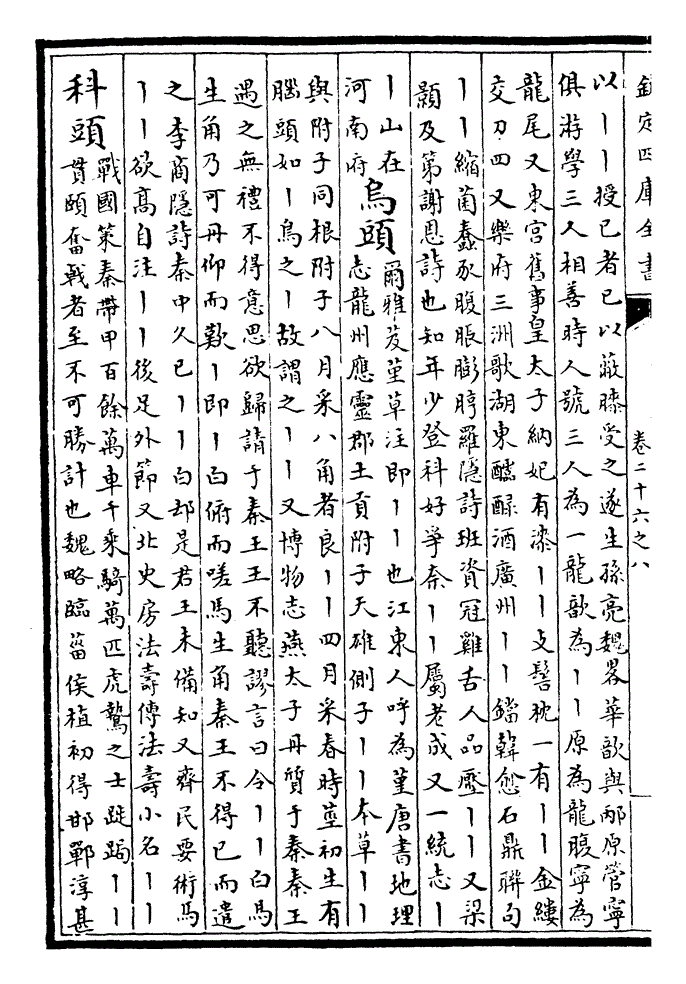 欽定四庫全書 卷二十六之八
以丨丨授已者已以蔽膝受之遂生孫亮魏畧華歆與邴原管寧
俱游學三人相善時人號三人為一龍歆為丨丨原為龍腹寧為
龍尾又東宮舊事皇太子納妃有漆丨丨支髻枕一有丨丨金縷
交刀四又樂府三洲歌湖東醽醁酒廣州丨丨鐺韓愈石鼎聯句
丨丨縮菌蠢豕腹脹膨脝羅隱詩班資冠雞舌人品壓丨丨又梁
顥及第謝恩詩也知年少登科好爭奈丨丨屬老成又一統志丨
丨山在
河南府
烏頭
爾雅芨菫草注即丨丨也江東人呼為菫唐書地理
志龍州應靈郡土貢附子天雄側子丨丨本草丨丨
與附子同根附子八月采八角者良丨丨四月采春時莖初生有
腦頭如丨鳥之丨故謂之丨丨又博物志燕太子丹質于秦秦王
遇之無禮不得意思欲歸請于秦王王不聽謬言曰令丨丨白馬
生角乃可丹仰而歎丨即丨白俯而嗟馬生角秦王不得已而遣
之李商隱詩秦中久已丨丨白却是君王未備知又齊民要術馬
丨丨欲髙自注丨丨後足外節又北史房法壽傳法壽小名丨丨
科頭
戰國策秦帶甲百餘萬車千乘騎萬匹虎鷙之士跿跼丨丨
貫頤奮戟者至不可勝計也魏略臨菑侯植初得邯鄲淳甚